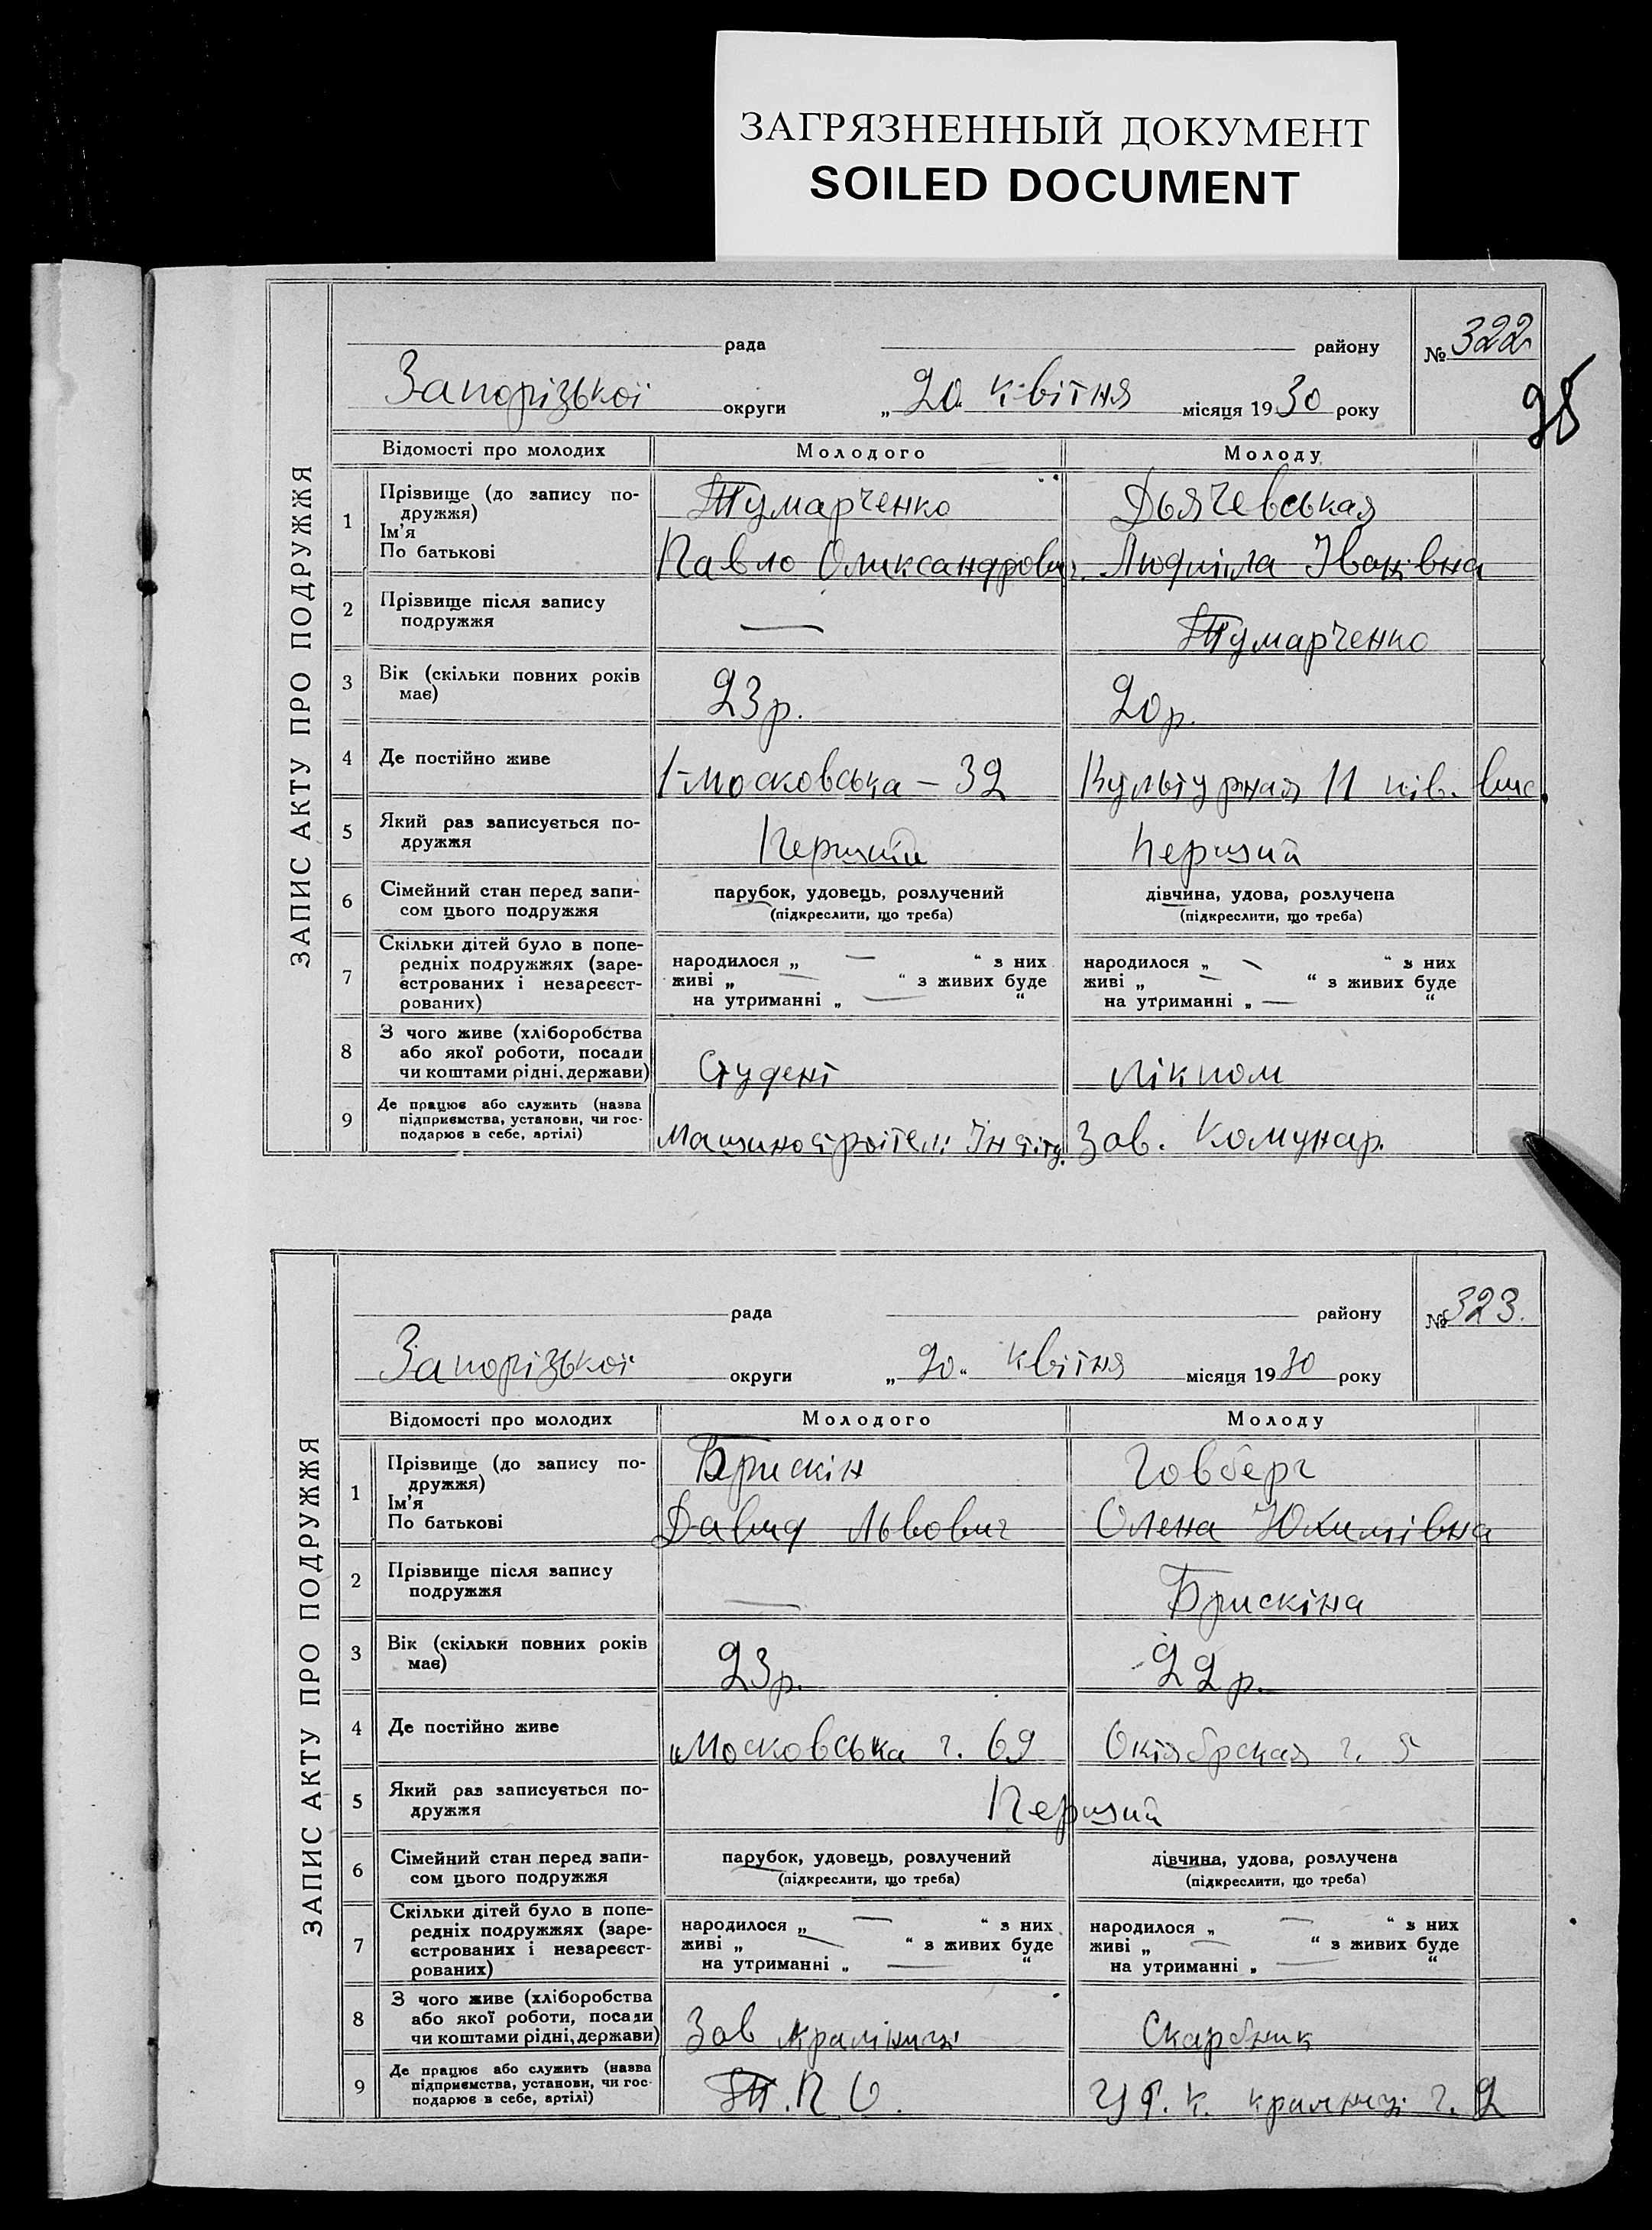 ЗАГРЯЗНЕННЫЙ ДОКУМЕНТ
SOILED DOCUMENT
ЗАПИС АКТУ ПРО ПОДРУЖЖЯ
рада району № 322
98
Запорізької округи „20“ квітня місяця 1930 року
Відомості про молодих Молодого Молоду
1 Прізвище (до запису по-дружжя) Тумарченко Дьячевськая
Ім'я
По батькові Павло Олександрович Людміла Іванівна
2 Прізвище після запису
подружжя — Тумарченко
3 Вік (скільки повних років
має) 23 р. 20 р.
4 Де постійно живе 1-Московська – 32 Культурная 11
5 Який раз записується по-
дружжя Перший Перший
6 Сімейний стан перед запи- парубок, удовець, розлучений дівчина, удова, розлучена
сом цього подружжя (підкреслити, що треба) (підкреслити, що треба)
7 Скільки дітей було в попе-
редніх подружжях (заре- народилося „ — “ з них народилося „ — “ з них
єстрованих і незареєст- живі „ — “ з живих буде живі „ — “ з живих буде
рованих) на утриманні „ — “ на утриманні „ — “
8 З чого живе (хліборобства
або якої роботи, посади
чи коштами рідні, держави) Студент Лікпом
9 Де працює або служить (назва
підприємства, установи, чи гос-
подарює в себе, артілі) Машиностроітел: Інстіту. Зав. Комунар.
ЗАПИС АКТУ ПРО ПОДРУЖЖЯ
рада району № 323.
Запорізької округи „20“ квітня місяця 1930 року
Відомості про молодих Молодого Молоду
1 Прізвище (до запису по-
дружжя) Брискін Говберг
Ім'я
По батькові Давид Львович Олена Юхимівна
2 Прізвище після запису
подружжя — Брискіна
3 Вік (скільки повних років
має) 23 р. 22 р.
4 Де постійно живе Московська г. 69 Октябрская г. 5
5 Який раз записується по-
дружжя Перший
6 Сімейний стан перед запи- парубок, удовець, розлучений дівчина, удова, розлучена
сом цього подружжя (підкреслити, що треба) (підкреслити, що треба)
7 Скільки дітей було в попе-
редніх подружжях (заре- народилося „ — “ з них народилося „ — “ з них
єстрованих і незареєст- живі „ — “ з живих буде живі „ — “ з живих буде
рованих) на утриманні „ — “ на утриманні „ — “
8 З чого живе (хліборобства
або якої роботи, посади
чи коштами рідні, держави) Зав крамниці Скарбник
9 Де працює або служить (назва
підприємства, установи, чи гос-
подарює в себе, артілі) Т.П.О. крамниці г. 2